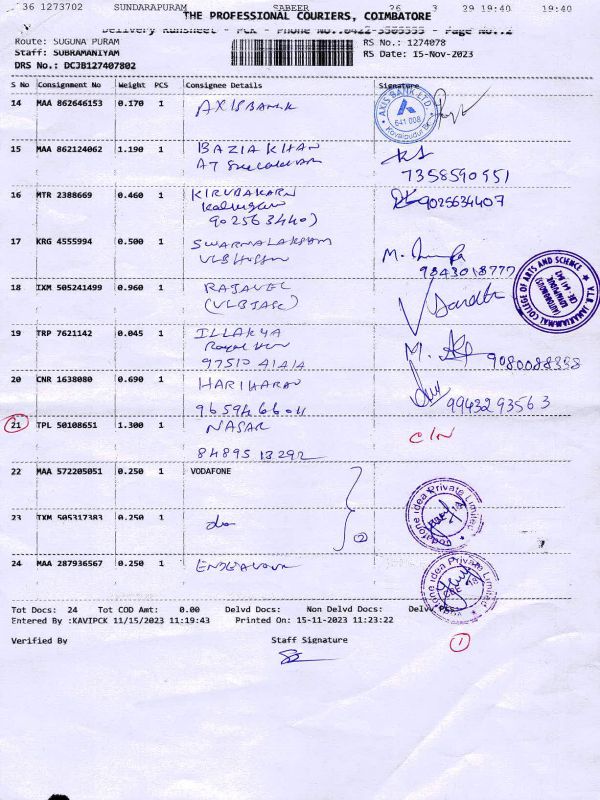 36 1273702 SUNDARAPURAM SABEER 26 3 29 19:40 19:40
THE PROFESSIONAL COURIERS, COIMBATORE
Delivery Runsheet - PCK - Phone No.:0422-3505555 - Page No.:2
Route: SUGUNA PURAM RS No.: 1274078
Staff: SUBRAMANIYAM RS Date: 15-Nov-2023
DRS No.: DCJB127407802
S No Consignment No Weight PCS Consignee Details Signature
14 MAA 862646153 0.170 1 AXIS BANK
AXIS BANK LTD.
641 008
15 MAA 862124062 1.190 1 BAZIA KHAN
7358590551
16 MTR 2388669 0.460 1 KIRUBAKARN
9025634407 9025634407
17 KRG 4555994 0.500 1 SWARNALAKSHM
9843018777
V.L.B. JANAKIAMMAL COLLEGE OF ARTS AND SCIENCE
18 IXM 505241499 0.960 1 RAJAVEL
(VLBJASC)
19 TRP 7621142 0.045 1 ILLAKYA
97510 41414 9080088338
20 CNR 1638080 0.690 1 HARIHARAN
9659466011 9943293563
21 TPL 50108651 1.300 1 NASAR C/N
84895 13292
22 MAA 572205051 0.250 1 VODAFONE
Vodafone Idea Private Limited
23 TXM 505317383 0.250 1 do (2)
24 MAA 287936567 0.250 1 ENDEAVOUR
Vodafone Idea Private Limited
Tot Docs: 24 Tot COD Amt: 0.00 Delvd Docs: Non Delvd Docs: Delvd
Entered By :KAVIPCK 11/15/2023 11:19:43 Printed On: 15-11-2023 11:23:22
Verified By Staff Signature
1